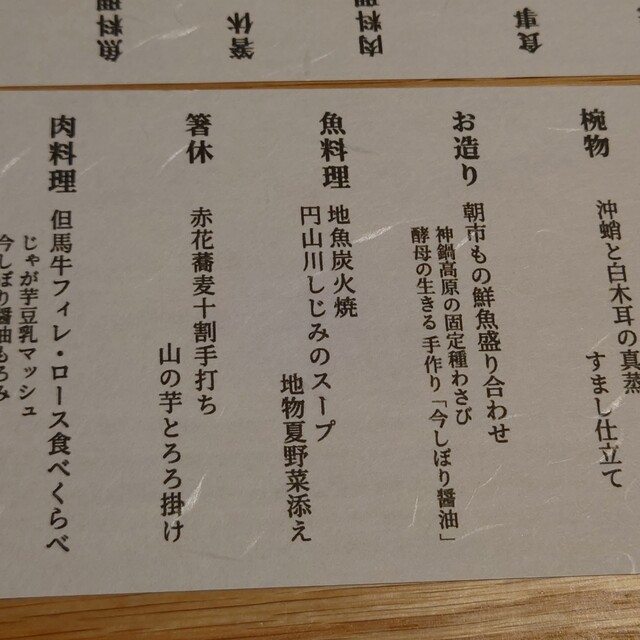 椀物
沖蛸と白木耳の真蒸
すまし仕立て
お造り
朝市もの鮮魚盛り合わせ
神鍋高原の固定種わさび
酵母の生きる 手作り「今しぼり醤油」
魚料理
地魚炭火焼
円山川しじみのスープ
地物夏野菜添え
箸休
赤花蕎麦十割手打ち
山の芋とろろ掛け
肉料理
但馬牛フィレ・ロース食べくらべ
じゃが芋豆乳マッシュ
今しぼり醤油もろみ
食事
肉料理
箸休
魚料理